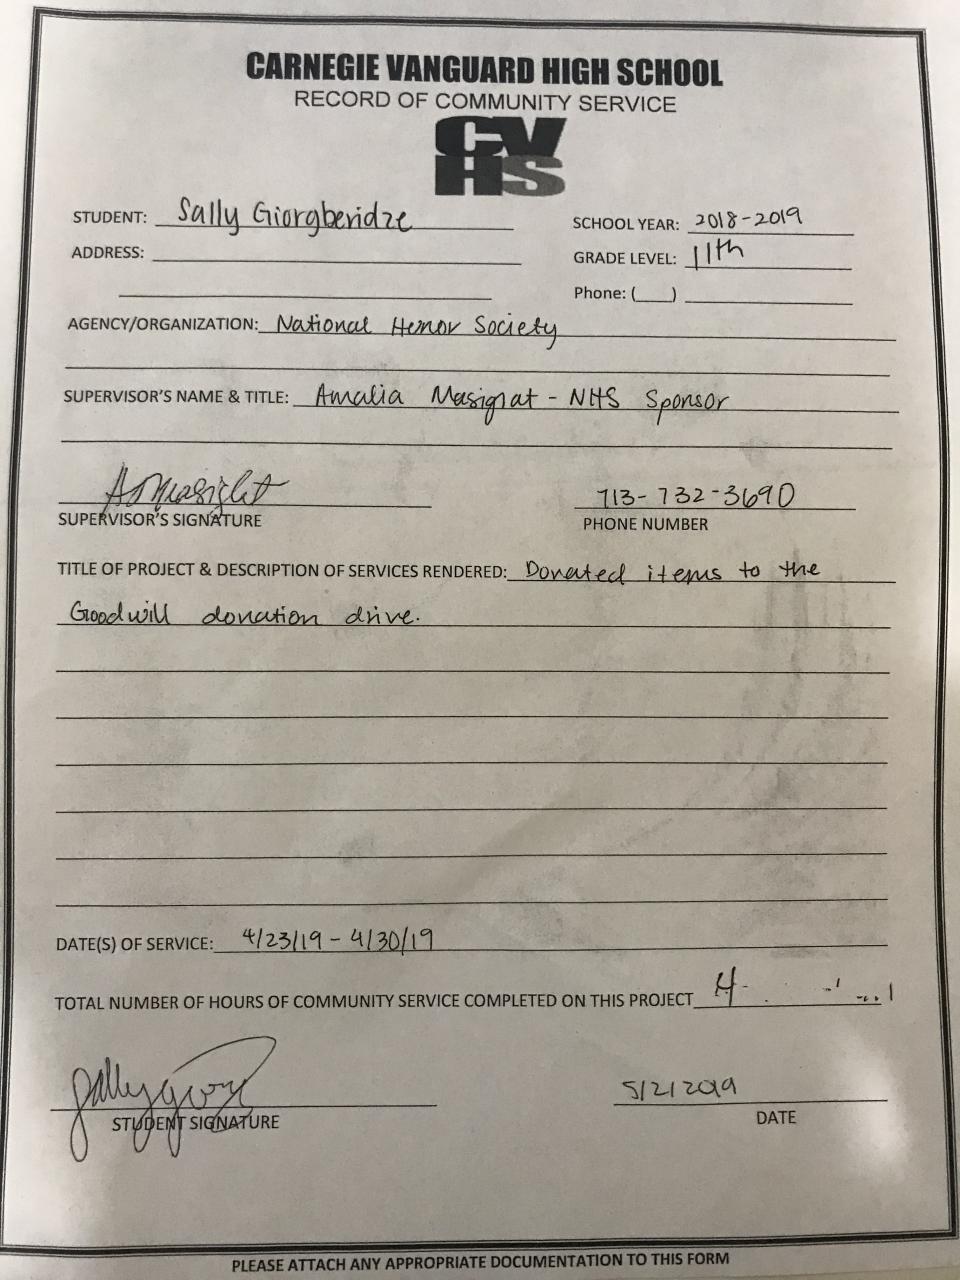 CARNEGIE VANGUARD HIGH SCHOOL
RECORD OF COMMUNITY SERVICE
CV
HS
STUDENT: Sally Giorgberidze
SCHOOL YEAR: 2018-2019
ADDRESS:
GRADE LEVEL: 11th
Phone: (___)
AGENCY/ORGANIZATION: National Honor Society
SUPERVISOR'S NAME & TITLE: Amalia Masignat - NHS Sponsor
SUPERVISOR'S SIGNATURE
713-732-3690
PHONE NUMBER
TITLE OF PROJECT & DESCRIPTION OF SERVICES RENDERED: Donated items to the
Goodwill donation drive.
DATE(S) OF SERVICE: 4/23/19 - 4/30/19
TOTAL NUMBER OF HOURS OF COMMUNITY SERVICE COMPLETED ON THIS PROJECT 4
STUDENT SIGNATURE
5/2/2019
DATE
PLEASE ATTACH ANY APPROPRIATE DOCUMENTATION TO THIS FORM